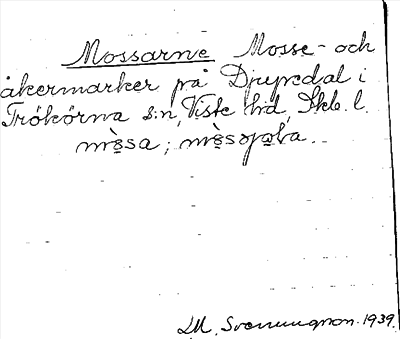 Mossarne Mosse- och
åkermarker på Djupedal i
Trökörna s:n, Viste hd, Skb. l.
mò̤sa; mò̤sɷjo̤ḷa.
LM. Svenungson. 1939.